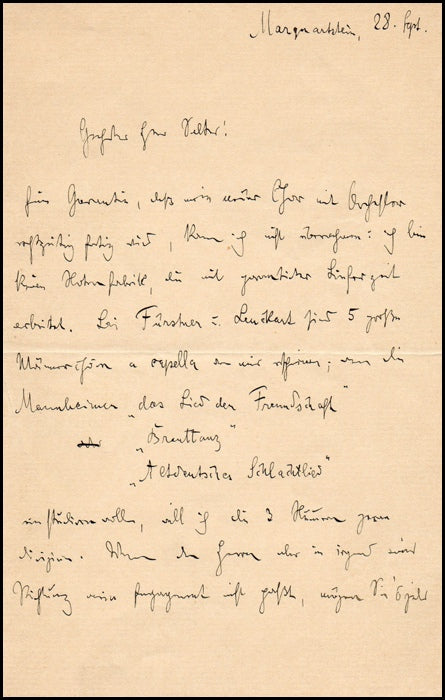 Marquartstein, 28. Sept.
Geehrter Herr
Eine Garantie, daß mein neuer Chor mit Orchester
rechtzeitig fertig wird, kann ich nicht übernehmen: ich bin
keine Notenfabrik, die mit garantierter Lieferzeit
arbeitet. Bei Fürstner u. Leuckart sind 5 große
Männerchöre a capella von mir erschienen; wenn die
Mannheimer „das Lied der Freundschaft"
„Brauttanz"
„Altdeutsches Schlachtlied"
einstudieren wollen, will ich die 3 Nummern gerne
dirigieren. Wenn den Herren aber in irgend einer
Richtung mein Engagement nicht paßt, mögen Sie's